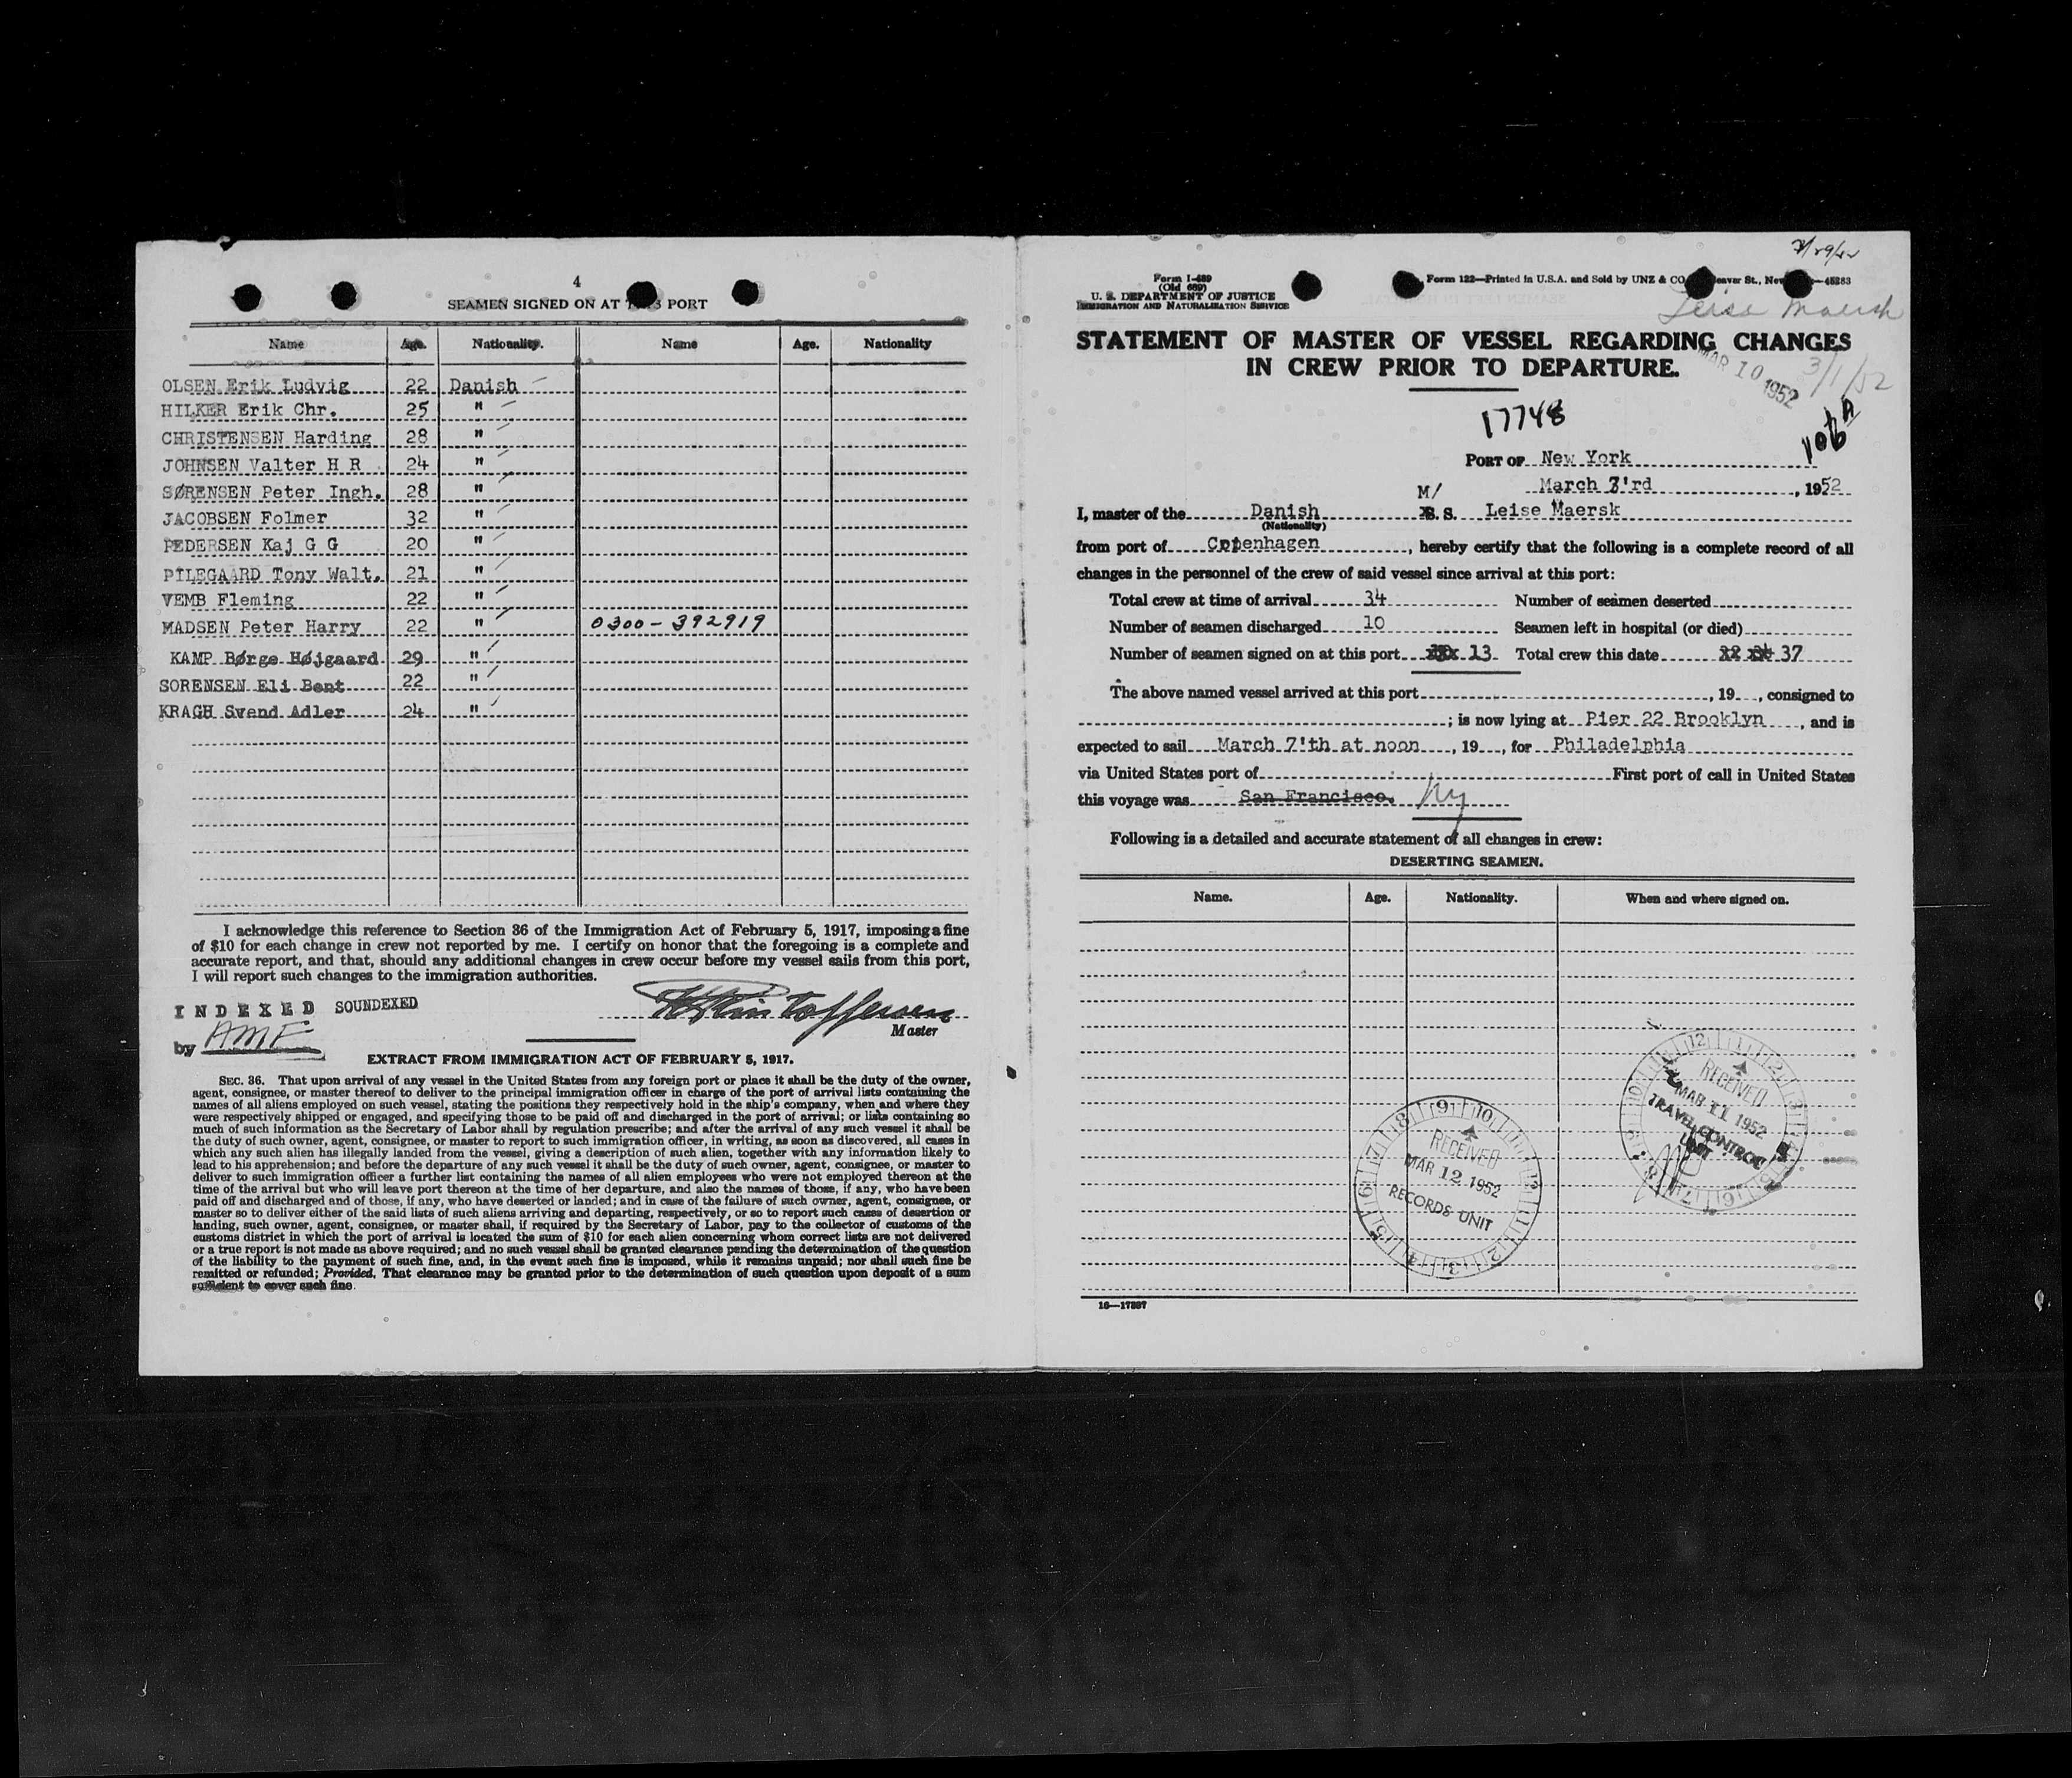 4
SEAMEN SIGNED ON AT PORT
Name Age. Nationality. Name Age. Nationality
OLSEN Erik Ludvig 22 Danish
HILKER Erik Chr. 25 "
CHRISTENSEN Harding 28 "
JOHNSEN Valter H R 24 "
SØRENSEN Peter Ingh. 28 "
JACOBSEN Folmer 32 "
PEDERSEN Kaj G G 20 "
PILEGAARD Tony Walt. 21 "
VEMB Fleming 22 "
MADSEN Peter Harry 22 " 0300-392919
KAMP Børge Højgaard 29 "
SORENSEN Eli Bent 22 "
KRAGH Svend Adler 24 "
I acknowledge this reference to Section 36 of the Immigration Act of February 5, 1917, imposing a fine
of $10 for each change in crew not reported by me. I certify on honor that the foregoing is a complete and
accurate report, and that, should any additional changes in crew occur before my vessel sails from this port,
I will report such changes to the immigration authorities.
INDEXED SOUNDEXED
by AMF
Master
EXTRACT FROM IMMIGRATION ACT OF FEBRUARY 5, 1917.
SEC. 36. That upon arrival of any vessel in the United States from any foreign port or place it shall be the duty of the owner,
agent, consignee, or master thereof to deliver to the principal immigration officer in charge of the port of arrival lists containing the
names of all aliens employed on such vessel, stating the positions they respectively hold in the ship's company, when and where they
were respectively shipped or engaged, and specifying those to be paid off and discharged in the port of arrival; or lists containing so
much of such information as the Secretary of Labor shall by regulation prescribe; and after the arrival of any such vessel it shall be
the duty of such owner, agent, consignee, or master to report to such immigration officer, in writing, as soon as discovered, all cases in
which any such alien has illegally landed from the vessel, giving a description of such alien, together with any information likely to
lead to his apprehension; and before the departure of any such vessel it shall be the duty of such owner, agent, consignee, or master to
deliver to such immigration officer a further list containing the names of all alien employees who were not employed thereon at the
time of the arrival but who will leave port thereon at the time of her departure, and also the names of those, if any, who have been
paid off and discharged and of those, if any, who have deserted or landed; and in case of the failure of such owner, agent, consignee, or
master so to deliver either of the said lists of such aliens arriving and departing, respectively, or so to report such cases of desertion or
landing, such owner, agent, consignee, or master shall, if required by the Secretary of Labor, pay to the collector of customs of the
customs district in which the port of arrival is located the sum of $10 for each alien concerning whom correct lists are not delivered
or a true report is not made as above required; and no such vessel shall be granted clearance pending the determination of the question
of the liability to the payment of such fine, and, in the event such fine is imposed, while it remains unpaid; nor shall such fine be
remitted or refunded; Provided, That clearance may be granted prior to the determination of such question upon deposit of a sum
sufficient to cover such fine.
Form I-489
(Old 689)
U. S. DEPARTMENT OF JUSTICE
IMMIGRATION AND NATURALIZATION SERVICE
Form 122—Printed in U.S.A. and Sold by UNZ & CO eaver St., New —45383
Leise Maersk
STATEMENT OF MASTER OF VESSEL REGARDING CHANGES
IN CREW PRIOR TO DEPARTURE.
MAR 10 1952
3/1/52
17748
PORT OF New York
March 3'rd , 1952
M/
I, master of the Danish S. S. Leise Maersk
(Nationality)
from port of Copenhagen , hereby certify that the following is a complete record of all
changes in the personnel of the crew of said vessel since arrival at this port:
Total crew at time of arrival 34 Number of seamen deserted
Number of seamen discharged 10 Seamen left in hospital (or died)
Number of seamen signed on at this port 13 Total crew this date 37
The above named vessel arrived at this port , 19 , consigned to
; is now lying at Pier 22 Brooklyn , and is
expected to sail March 7'th at noon , 19 , for Philadelphia
via United States port of First port of call in United States
this voyage was San Francisco. Ny
Following is a detailed and accurate statement of all changes in crew:
DESERTING SEAMEN.
Name. Age. Nationality. When and where signed on.
RECEIVED
MAR 11 1952
TRAVEL CONTROL
UNIT
RECEIVED
MAR 12 1952
RECORDS UNIT
16—17887